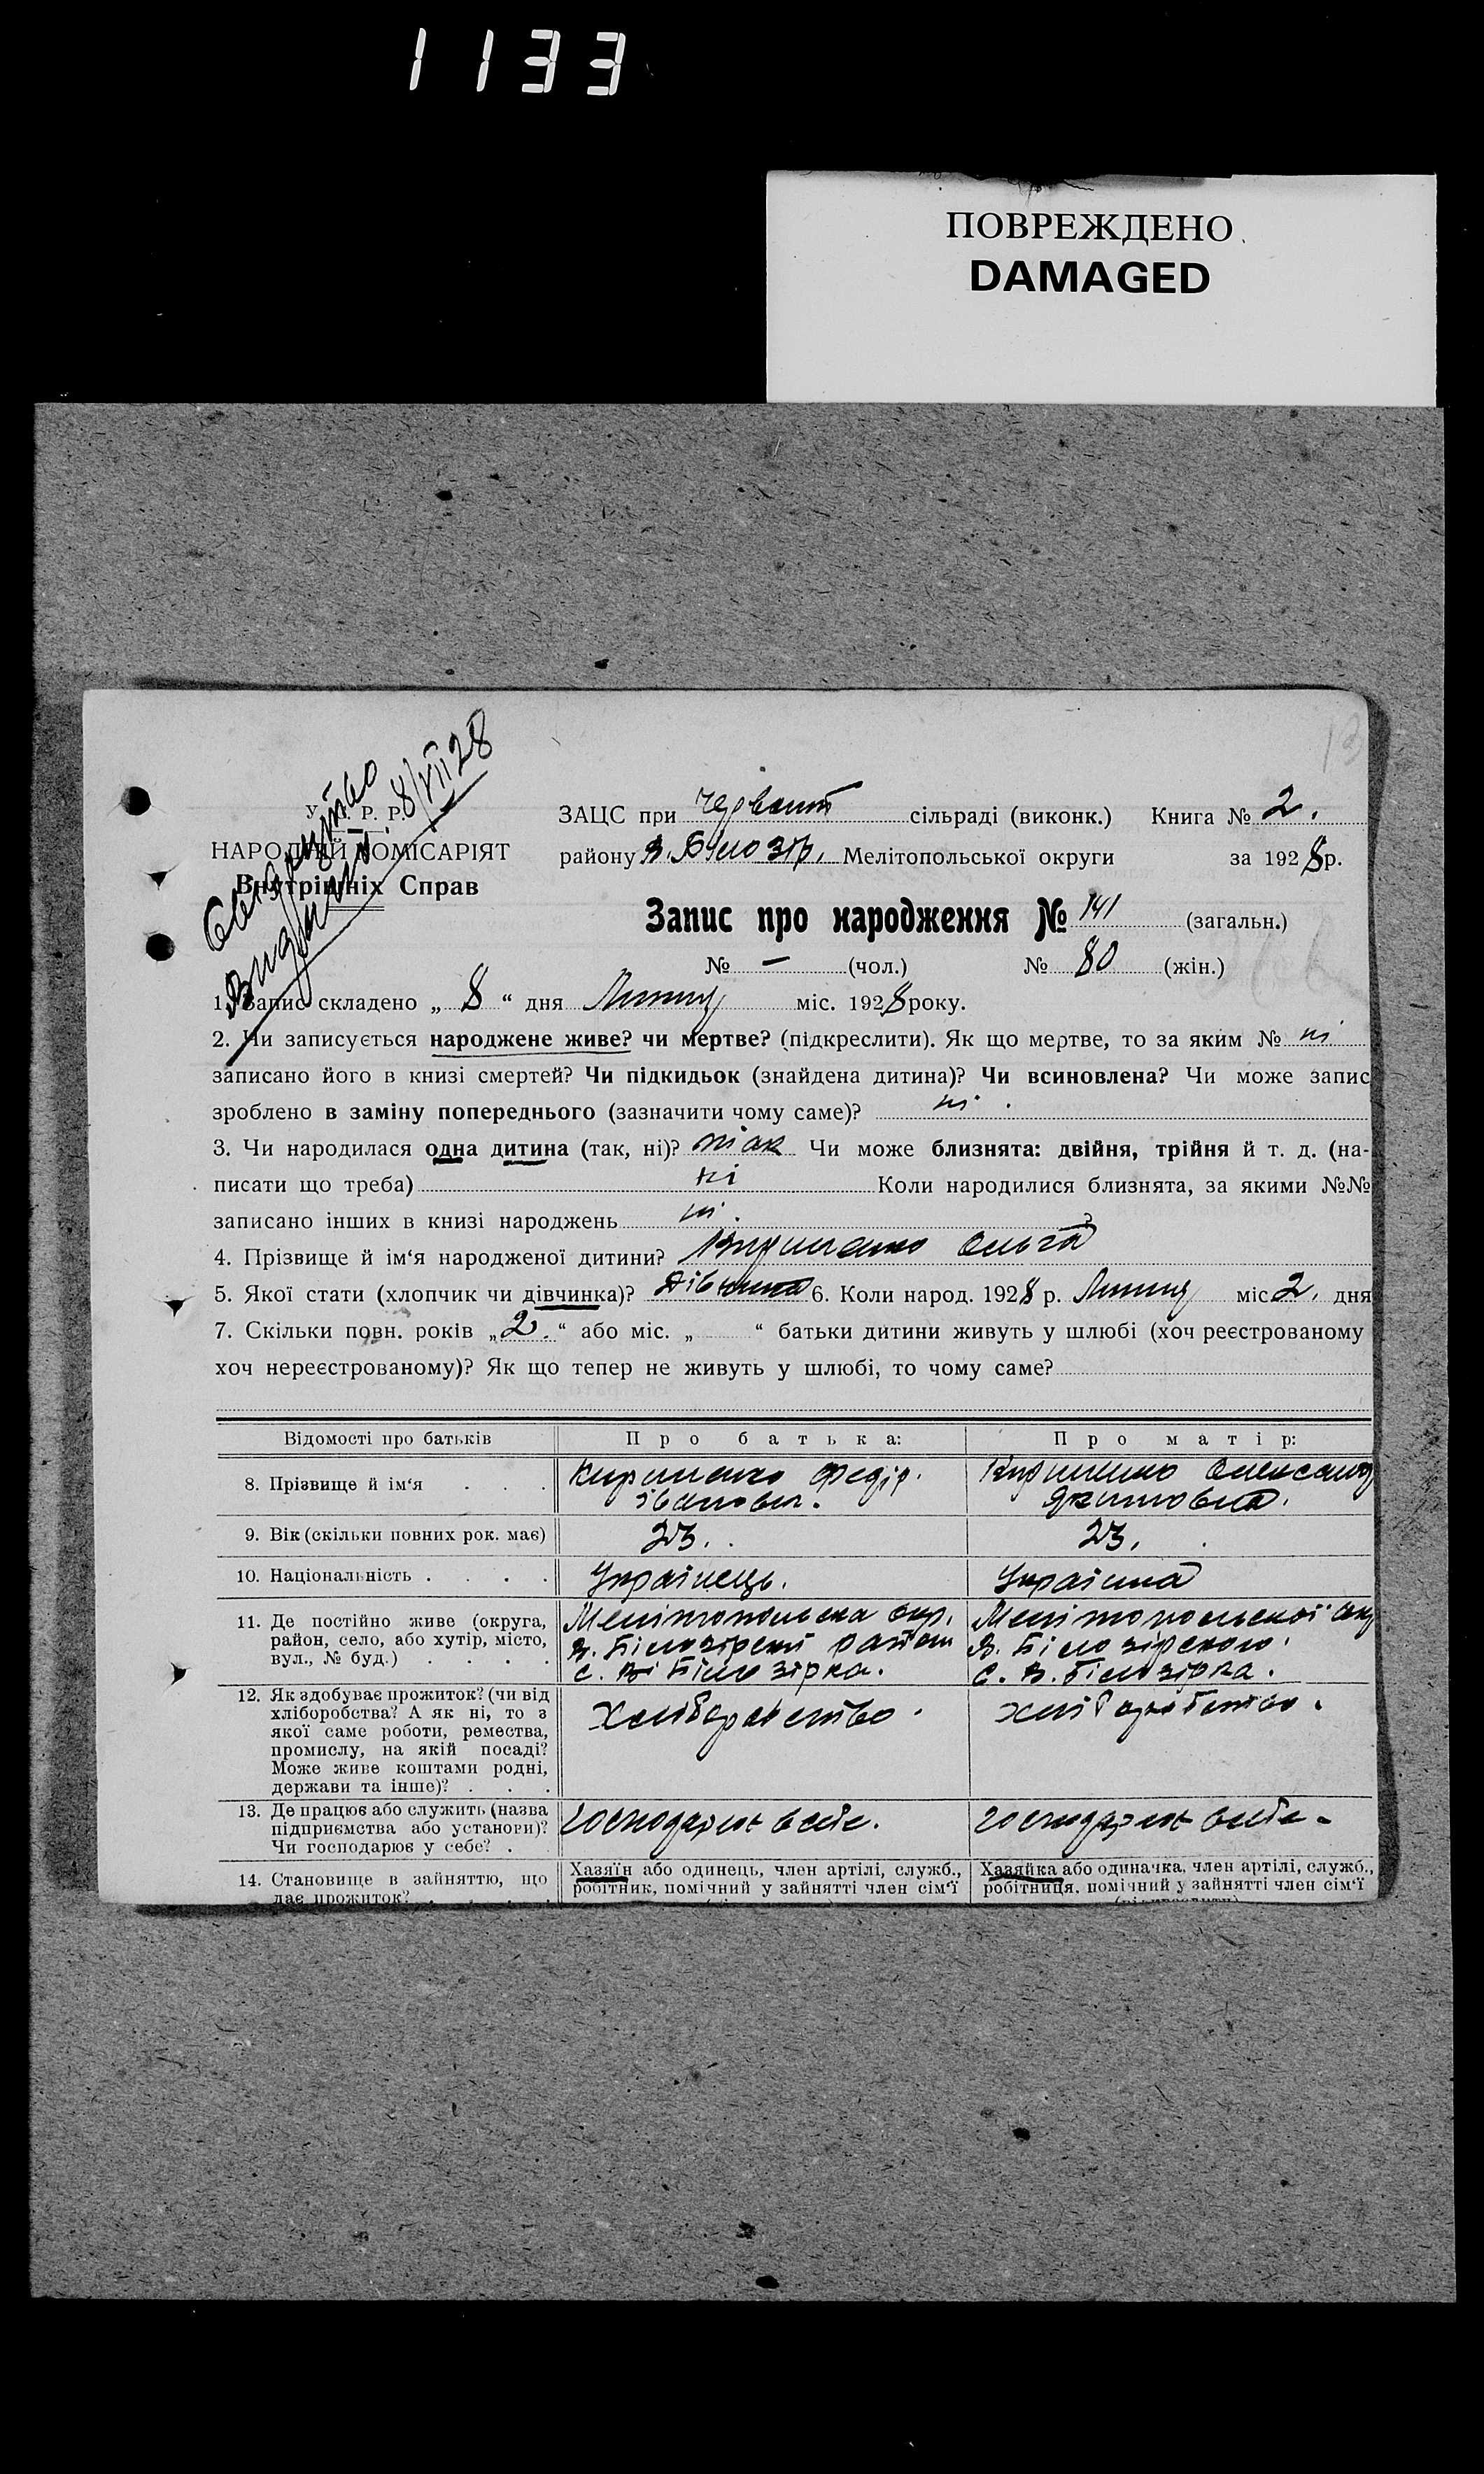 1133
ПОВРЕЖДЕНО
DAMAGED
8/VII 28
У. Р. Р.
НАРОДНІЙ КОМІСАРІЯТ
Внутрішніх Справ
ЗАЦС при сільраді (виконк.) Книга № 2.
району В. Білозір. Мелітопольської округи за 1928 р.
Запис про народження № 141 (загальн.)
№ — (чол.) № 80 (жін.)
1. Запис складено „ 8 “ дня Липня міс. 1928 року.
2. Чи записується народжене живе? чи мертве? (підкреслити). Як що мертве, то за яким № ні
записано його в книзі смертей? Чи підкидьок (знайдена дитина)? Чи всиновлена? Чи може запис
зроблено в заміну попереднього (зазначити чому саме)? ні.
3. Чи народилася одна дитина (так, ні)? так Чи може близнята: двійня, трійня й т. д. (на-
писати що треба) ні Коли народилися близнята, за якими №№
записано інших в книзі народжень ні. ?
4. Прізвище й ім‘я народженої дитини? Ольга
5. Якої стати (хлопчик чи дівчинка)? 6. Коли народ. 1928 р. Липня міс 2. дня
7. Скільки повн. років „ 2. “ або міс. „ “ батьки дитини живуть у шлюбі (хоч реєстрованому
хоч нереєстрованому)? Як що тепер не живуть у шлюбі, то чому саме?
Відомості про батьків
Про батька:
Про матір:
8. Прізвище й ім‘я . . .
Федір
Іванович.
Олександ
Якимовна.
9. Вік (скільки повних рок. має)
23.
23.
10. Національність . . . .
Українець.
Українка
11. Де постійно живе (округа,
район, село, або хутір, місто,
вул., № буд.) . . . .
Мелітопольска окр.
В. Білозірский район
с. В. Білозірка.
Мелітопольскоі окр
В. Білозірского.
с. В. Білозірка.
12. Як здобуває прожиток? (чи від
хліборобства? А як ні, то з
якої саме роботи, ремества,
промислу, на якій посаді?
Може живе коштами родні,
держави та інше)? . . .
13. Де працює або служить (назва
підприємства або установи)?
Чи господарює у себе? .
14. Становище в зайняттю, що
дає прожиток? . . . .
Хазяїн або одинець, член артілі, служб.,
робітник, помічний у зайнятті член сім‘ї
Хазяйка або одиначка, член артілі, служб.,
робітниця, помічний у зайнятті член сім‘ї